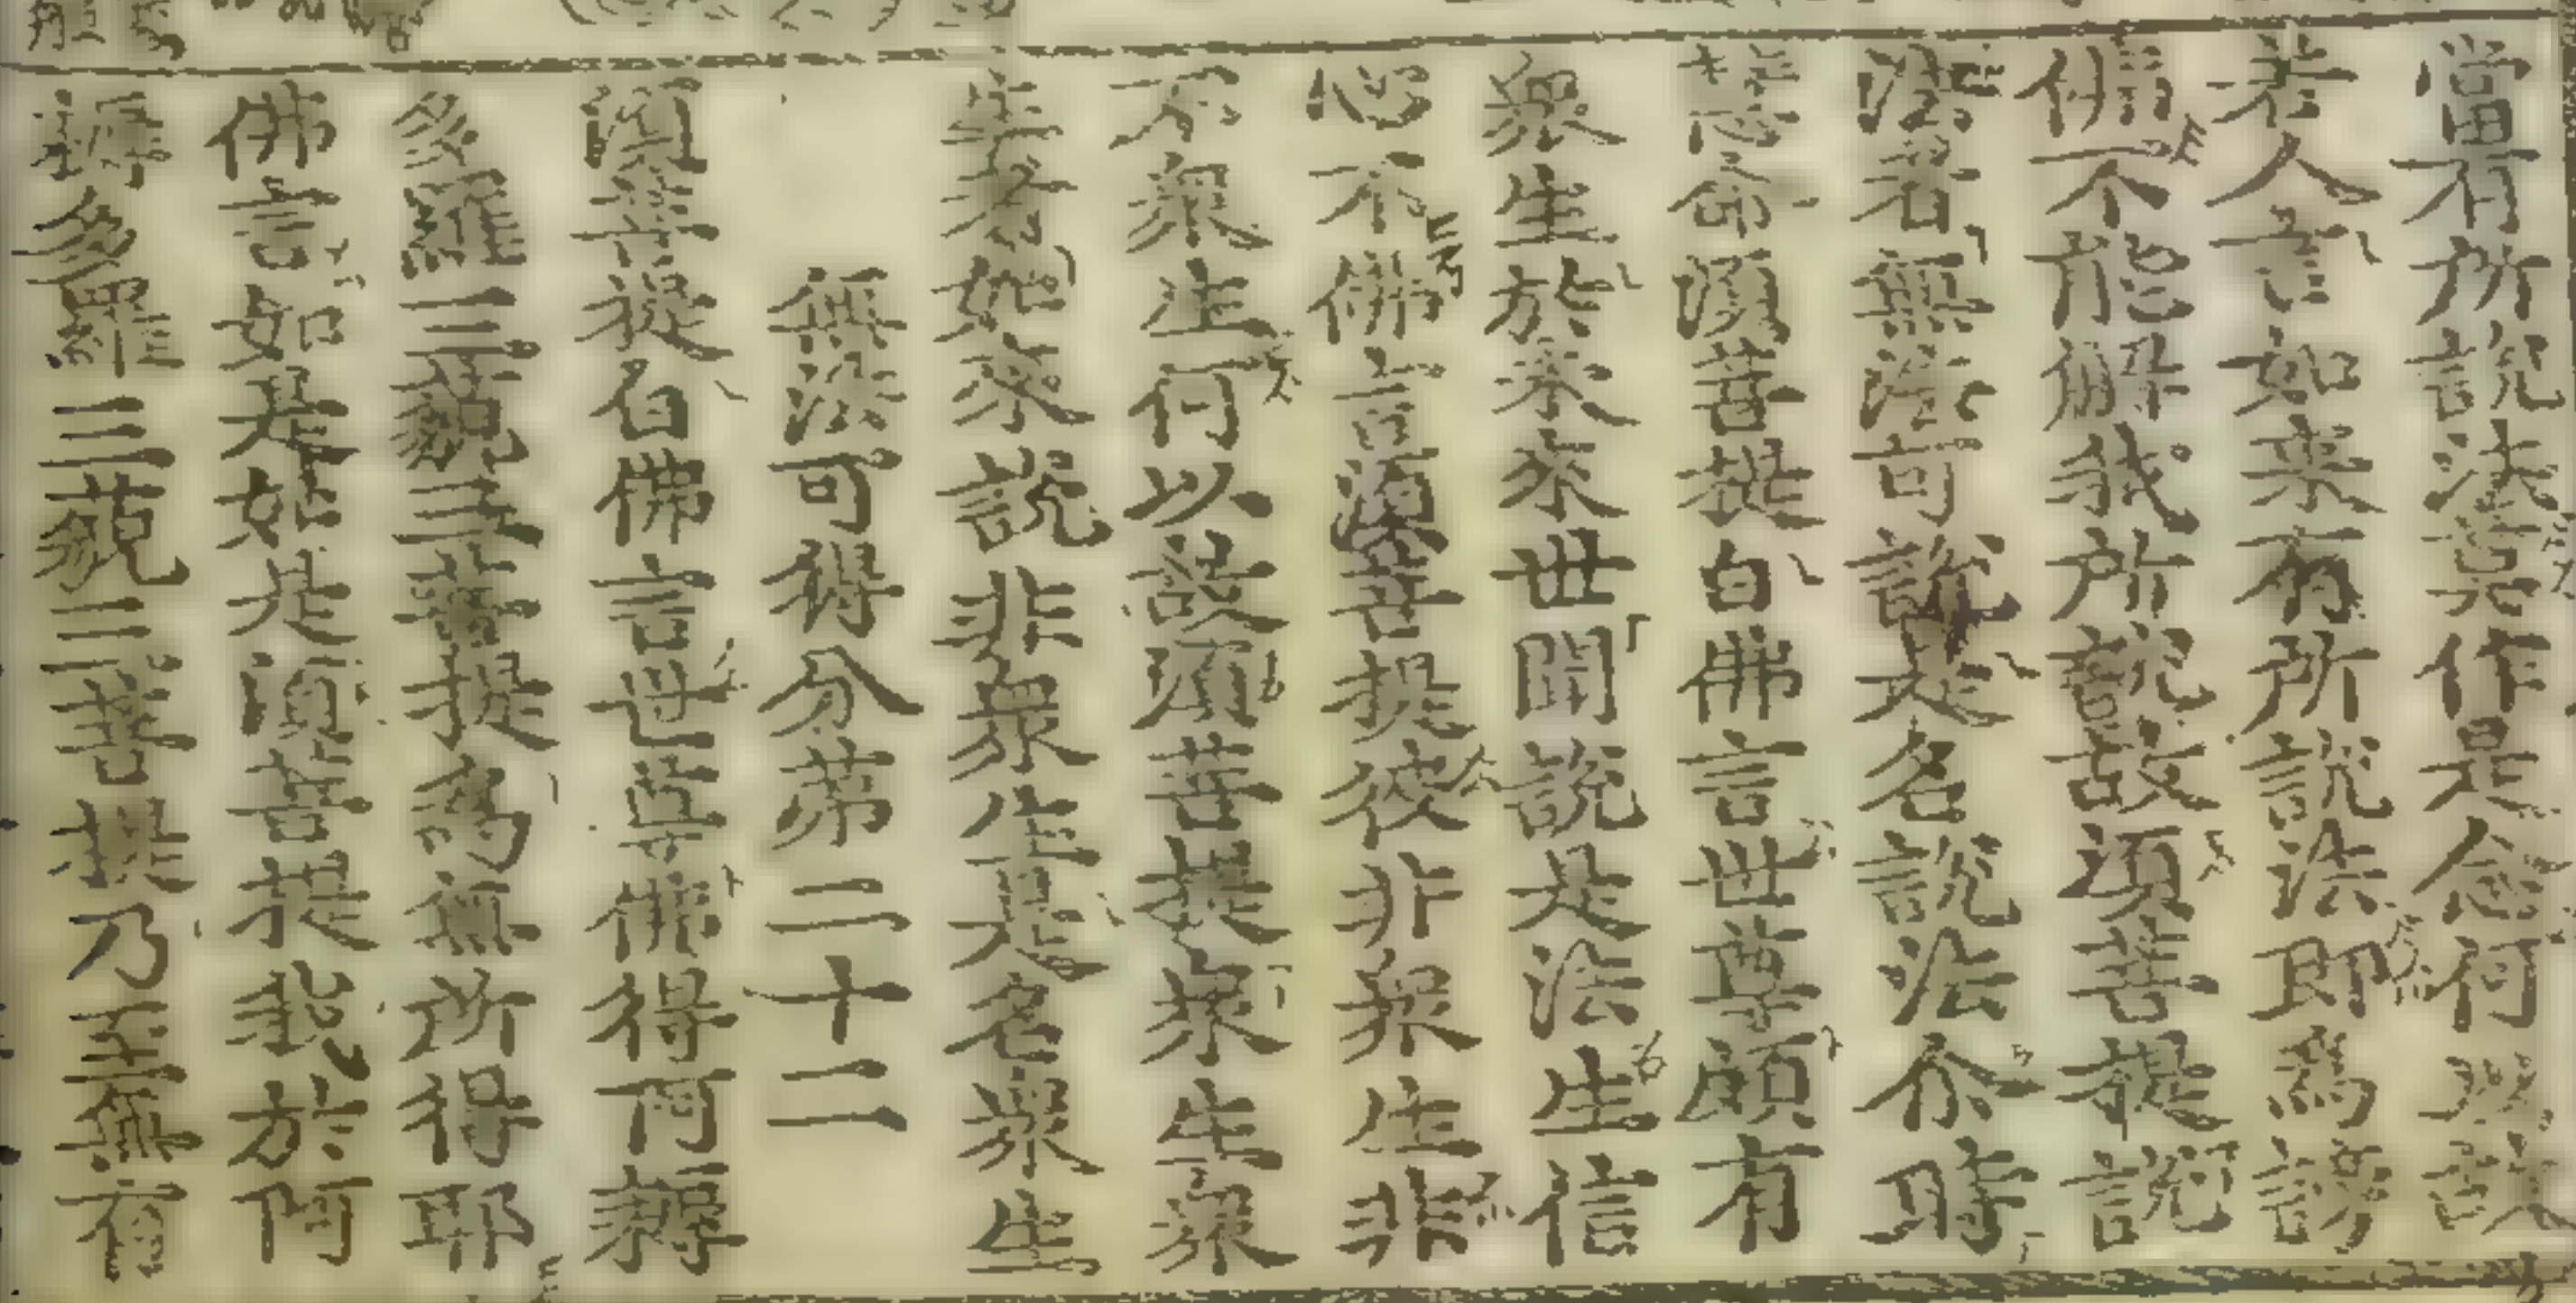 當有所說法莫作是念何以故
若人言如来有所說法即爲謗
佛不能解我所說故須菩提說
法者無法可說是名說法尒時
慧命須菩提白佛言世尊頗有
衆生於未來世聞說是法生信
心不佛言湏菩提彼非衆生非
不衆生何以故湏菩提衆生衆
生者如來說非衆生是名衆生
無法可得分第二十二
湏菩提白佛言世尊佛得阿耨
多羅三藐三菩提爲無所得耶
佛言如是如是湏菩提我於阿
耨多羅三藐三菩提乃至無有